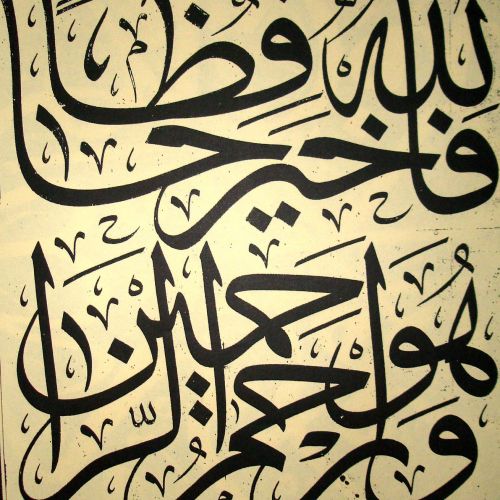 فالله خير حافظا
وهو ارحم الراحمين